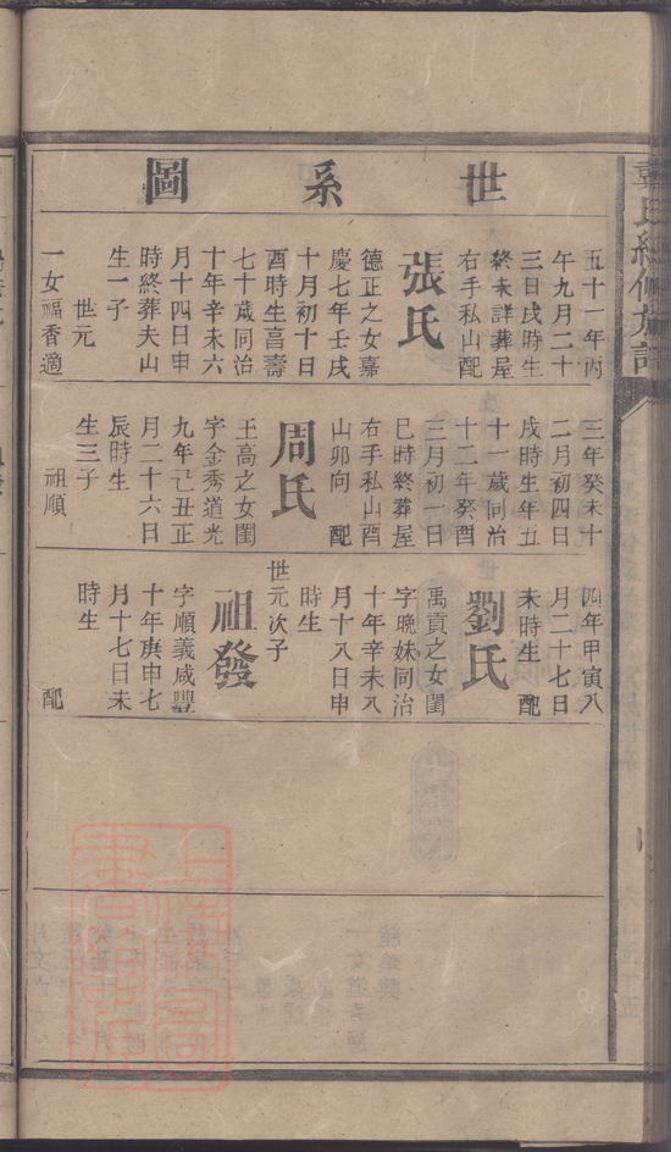 世系圖
五十一年丙
午九月二十
三日戌時生
終未詳葬屋
右手私山配
張氏
德正之女嘉
慶七年壬戌
十月初十日
酉時生享壽
七十歲同治
十年辛未六
月十四日申
時終葬夫山
生一子
世元
一女福香適
三年癸未十
二月初四日
戌時生年五
十一歲同治
十二年癸酉
三月初一日
巳時終葬屋
右手私山酉
山卯向 配
周氏
王高之女閨
字金秀道光
九年己丑正
月二十六日
辰時生
生三子
祖順
四年甲寅八
月二十七日
未時生 配
劉氏
禹貢之女閨
字晚妹同治
十年辛未八
月十八日申
時生
世元次子
祖發
字順義咸豐
十年庚申七
月十七日未
時生
配